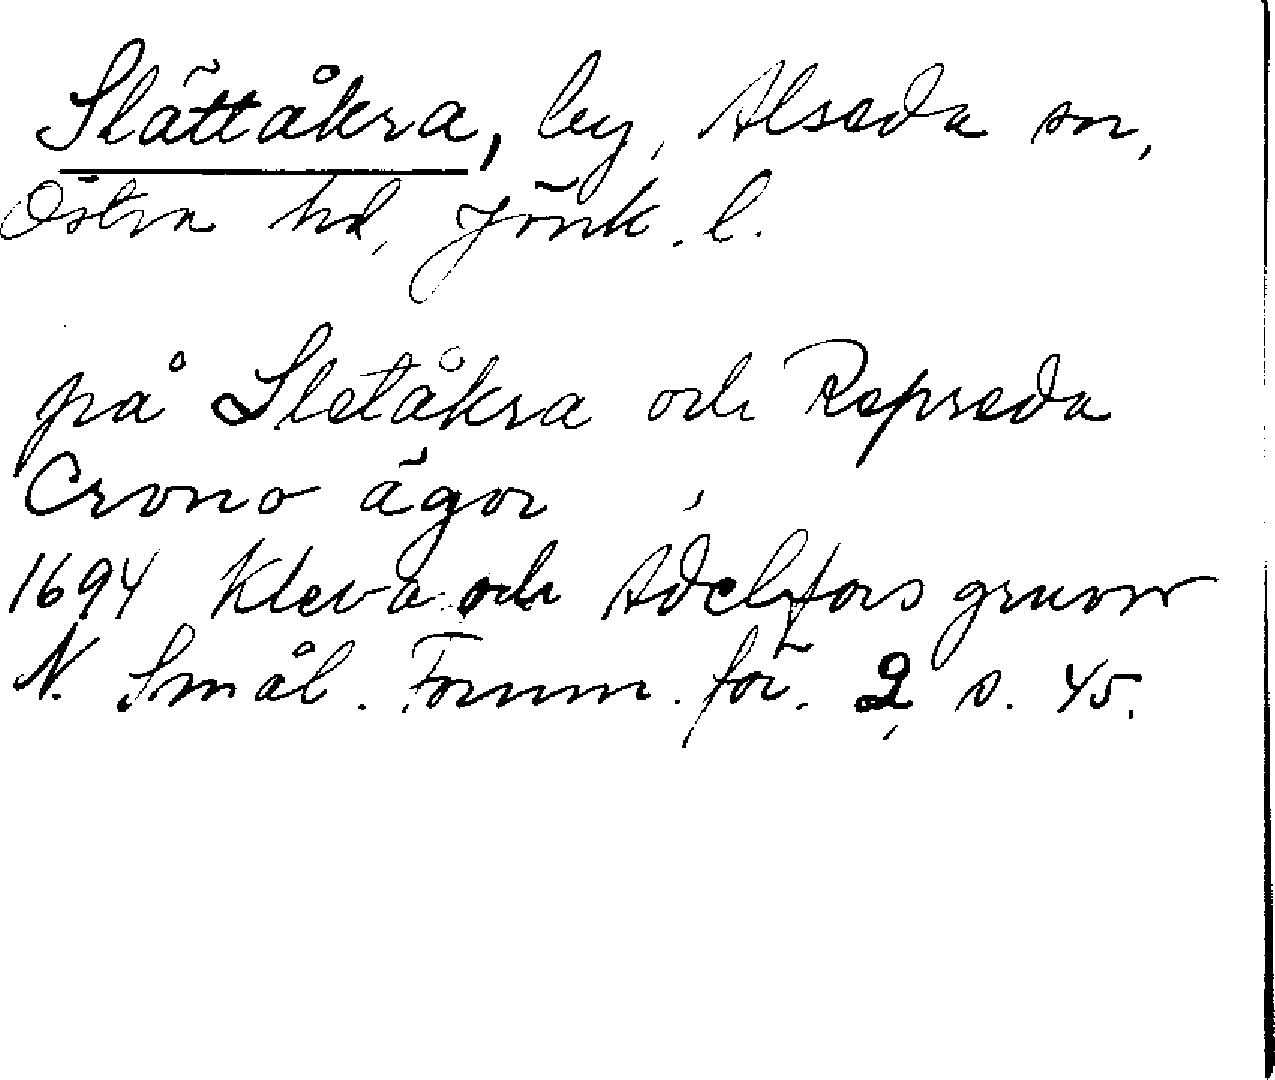 Slättåkra, by, Alseda sn,
Östra hd, Jönk. l.
på Sletåkra och Repseda
Crono ägor
1694 Kleva och Ädelfors gruvor
N. Smål. Fornm. för. 2, s. 45.